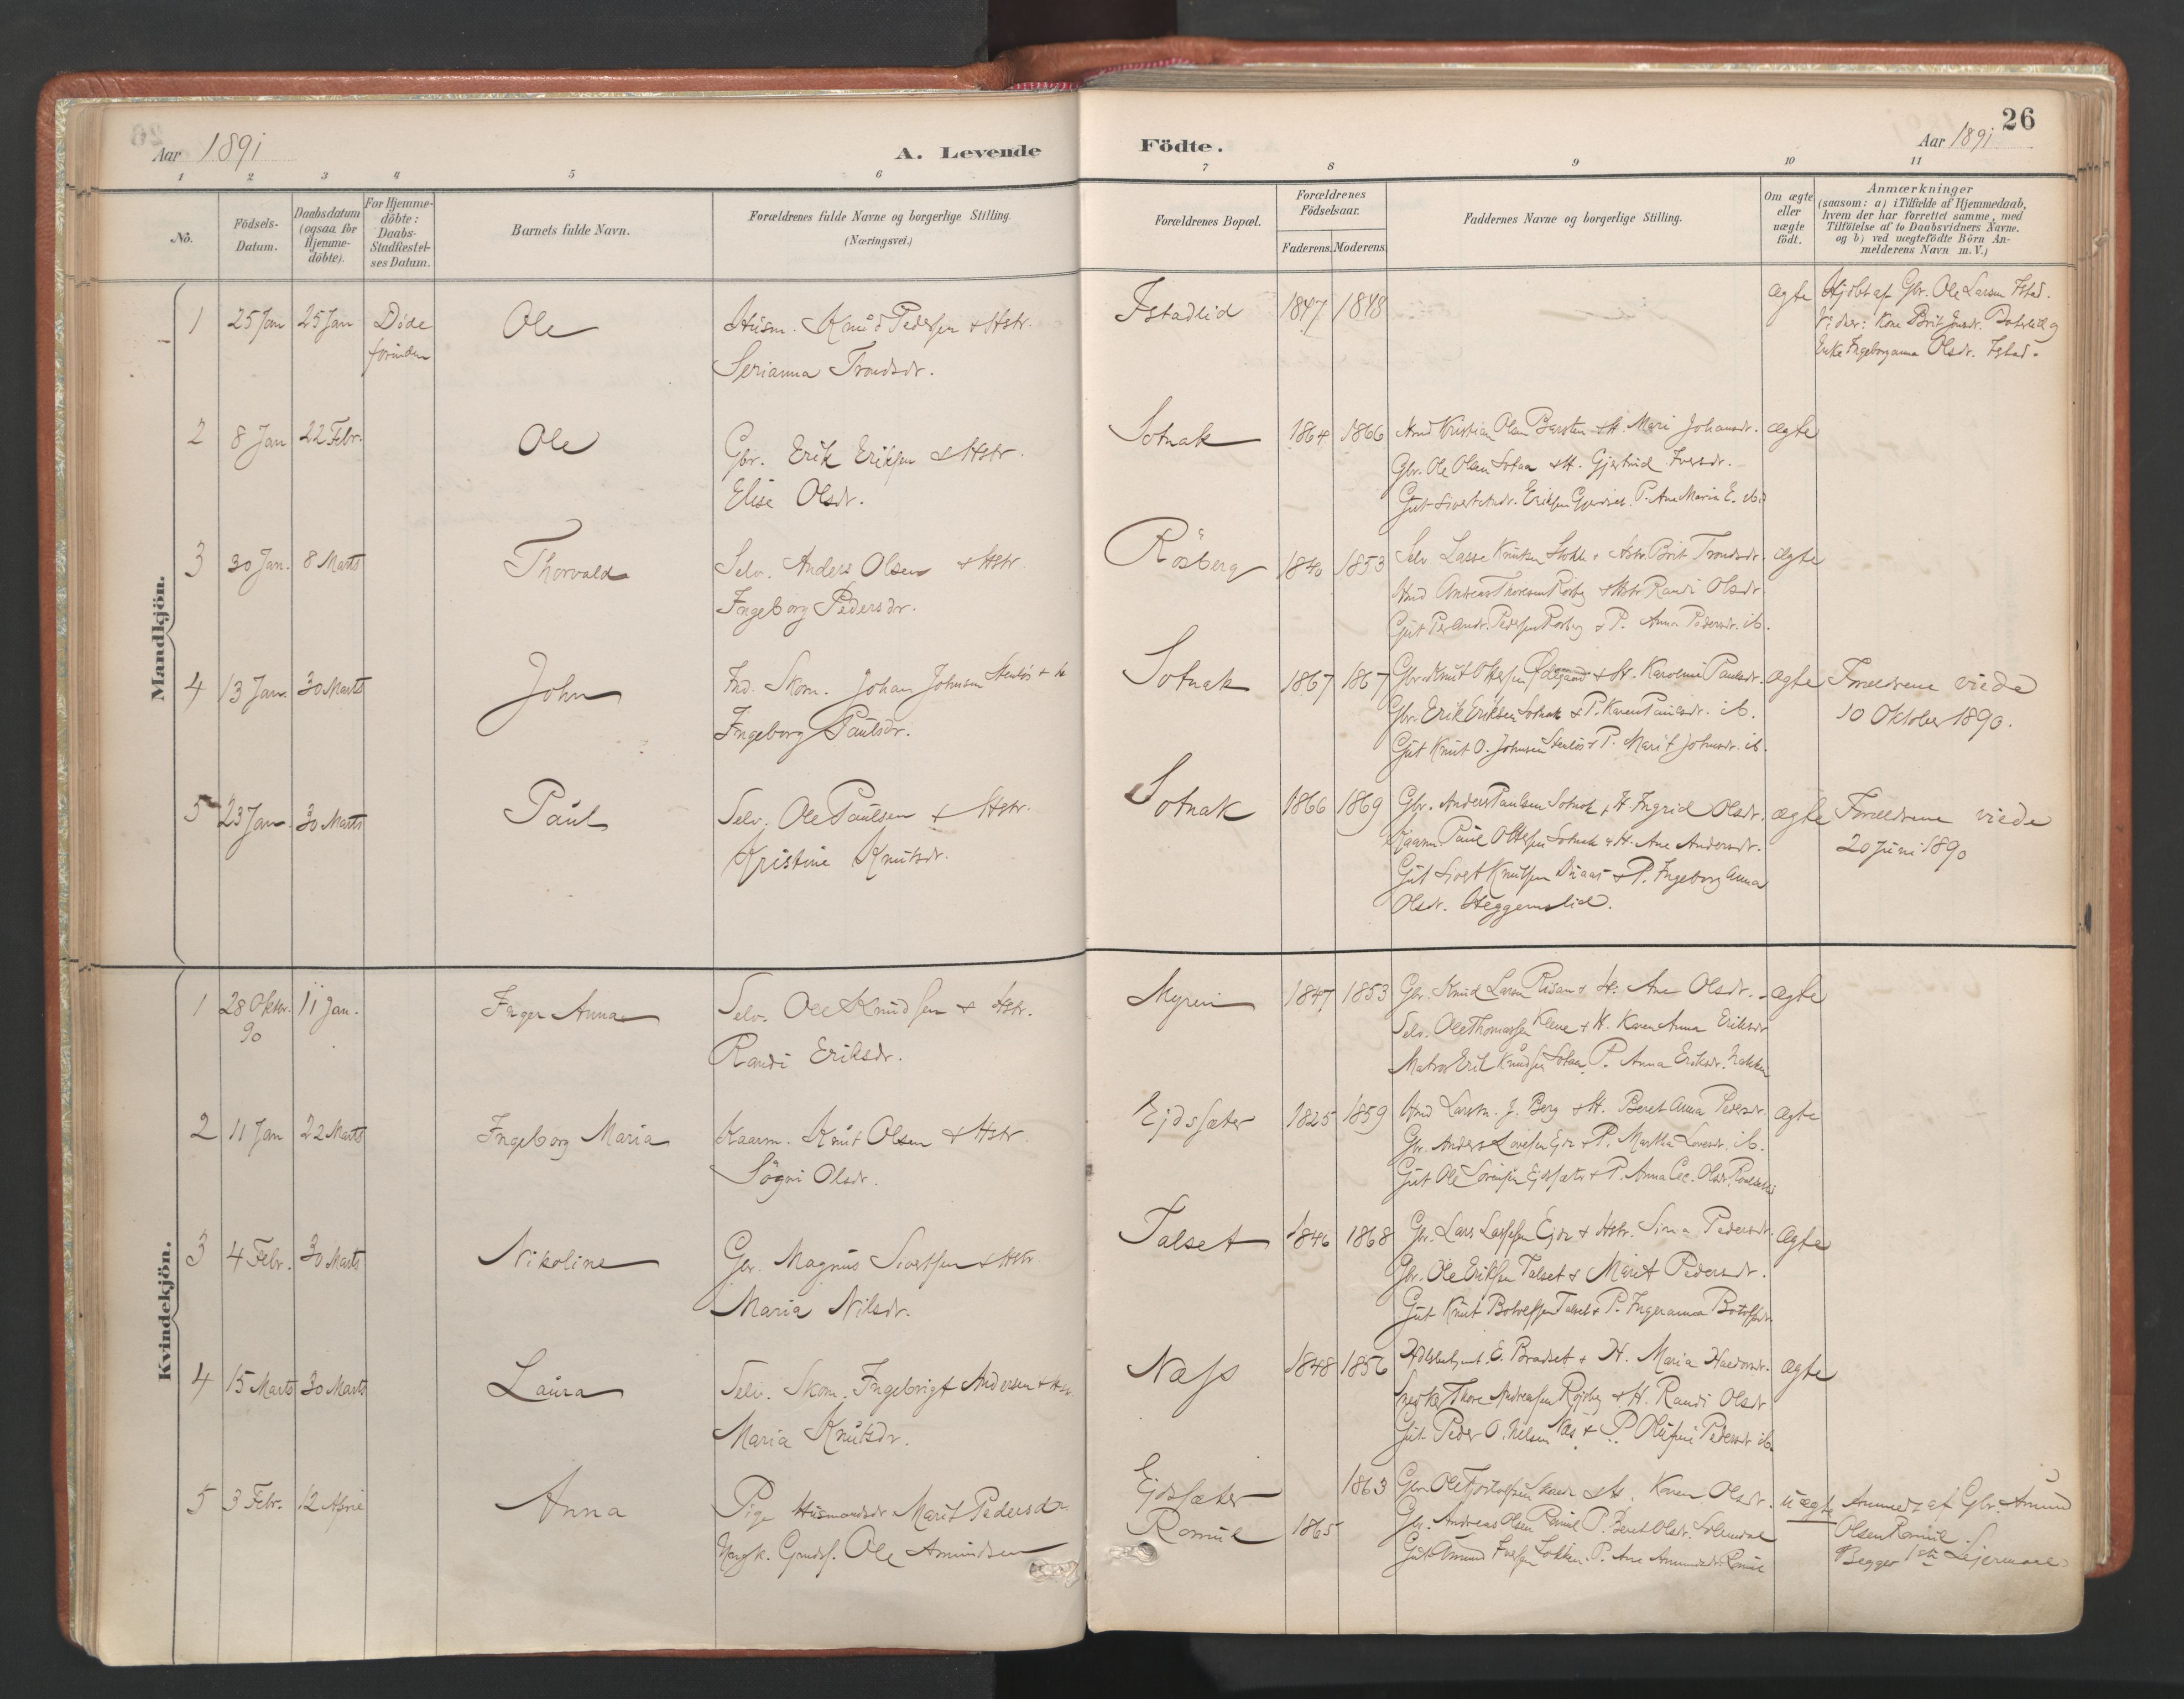 26
Aar 1891
A. Levende Födte.
Aar 1891
1 2 3 4 5 6 7 8 9 10 11
No.
Födsels-Datum.
Daabsdatum (ogsaa for Hjemme-döbte).
For Hjemme-döbte: Daabs-Stadfæstel-ses Datum.
Barnets fulde Navn.
Forældrenes fulde Navne og borgerlige Stilling.
(Næringsvei.)
Forældrenes Bopæl.
Forældrenes Födselsaar.
Faderens. Moderens.
Faddernes Navne og borgerlige Stilling.
Om ægte eller uægte födt.
Anmærkninger
(saasom: a) i Tilfælde af Hjemmedaab,
hvem der har forrettet samme, med
Tilföielse af to Daabsvidners Navne.
og b) ved uægtefödte Börn An-
melderens Navn m.V.)
Mandkjön.
1 25 Jan 25 Jan Døde forinden Ole
Husm. Knud Pedersen + Hstr.
Serianna Trondsdr.
Istadlid 1847 1848 ægte
Hjdøbt af Gbr. Ole Larsen Istad.
Vidner: Kone Brit
Enke Ingeboranna Olsdr. Istad.
2 8 Jan 22 Febr. Ole
Gbr. Erik Eriksen & Hstr.
Elise Olsdr.
Sotnak 1864 1866 ægte
Kristian Olsen & H. Mari Johansdr.
Gbr. Ole Olsen Sotaa & H. Gjertrud Iversdr.
Gut Sivert Eriksen P. Ane Maria E. ib.
3 30 Jan. 8 Marts Thorvald
Selv. Anders Olsen + Hstr.
Ingeborg Pedersdr.
Rösberg 1840 1853 ægte
Selv Lasse Knutsen + Hstr. Brit Trondsdr.
Andreas Thoresen Rösbg + Hstr Randi Olsdr
Gut Per Andr. Pedersen Rösberg + P. Anna Pedersdr. ib.
4 13 Jan. 30 Marts John
Ind. Skom. Johan Johnsen Stenlös + H
Ingeborg Paulsdr.
Sotnak 1867 1867 ægte
Gbr. Knut Ottersen Ødegaard + H. Karoline Paulsdr.
Gbr. Erik Eriksen Sotnak + P. Karen Paulsdr. ib.
Gut Knut O. Johnsen Stenlös + P. Marit Johnsdr. ib.
Forældrene viede
10 Oktober 1890.
5 23 Jan. 30 Marts Paul
Selv. Ole Paulsen + Hstr.
Kristine Knutsdr.
Sotnak 1866 1869 ægte
Gbr. Anders Paulsen Sotnak + H. Ingrid Olsdr.
Kaarm. Paul Ottesen Sotnak + H. Ane Andersdr.
Gut Sivert Knutsen + P. Ingeborg Anna
Olsdr. Heggemslid.
Forældrene viede
20 Juni 1890
Kvindekjön.
1 28 Oktbr. 90 11 Jan. Inger Anna
Selv. Ole Knudsen + Hstr.
Randi Eriksdr.
Myren 1847 1853 ægte
Gbr. Knud Larsen Risan + H. Ane Olsdr.
Selv. Ole Thomassen Kleve + H. Karen Anna Eriksdr
Matros Erik Knudsen Sotaa P. Anna Eriksdr. Nakken
2 11 Jan 22 Marts Ingeborg Maria
Kaarm. Knut Olsen + Hstr.
Sögni Olsdr.
Ejdssæter 1825 1859 ægte
J. Berg + H. Beret Anna Pedersdr.
Gbr. Anders + P. Martha ib.
Gut Ole Sörensen Ejdssæter + P. Anna Cec. Olsdr.
3 4 Febr. 30 Marts Nikoline
Gbr. Magnus Sivertsen + Hstr.
Maria Nilsdr.
Talset 1846 1868 ægte
Gbr. Lars Lassesen + Hstr. Siria Pedersdr.
Gbr. Ole Eriksen Talset + Marit Pedersdr.
Gut Knut Talset + P. Ingeranna
4 15 Marts 30 Marts Laura
Selv. Skom. Ingebrigt Andersen + Hstr.
Maria Knutsdr.
Næss 1848 1856 ægte
E. Bradset + H. Maria Haldorsdr.
Snedker Thore Andreassen Rösbg + H. Randi Olsdr
Gut Peder O. Nilsen Næs + P. Olufine Pedersdr ib.
5 3 Febr. 12 April Anna
Pige Husmandsdr. Marit Pedersdr
Ungk. Gaards. Ole Amundsen
Ejdssæter 1863
Romul 1865 uægte
Gbr. Ole & H. Karen Olsdr.
Gbr. Andreas Olsen Romul P. Beret Olsdr.
Gut Amund Iversen Løkken. P. Ane Amundsdr. Romul
Anmeldt af Gbr. Amund
Olsen Romul.
Begges 1ste Lejermaal